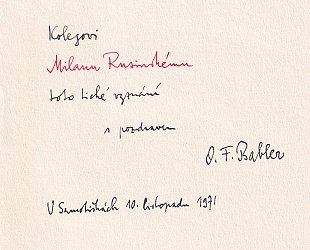 Kolegovi
Milanu Rusinskému
toto tiché vyznání
s pozdravem
O. F. Babler
V Samotiškách 10. listopadu 1971